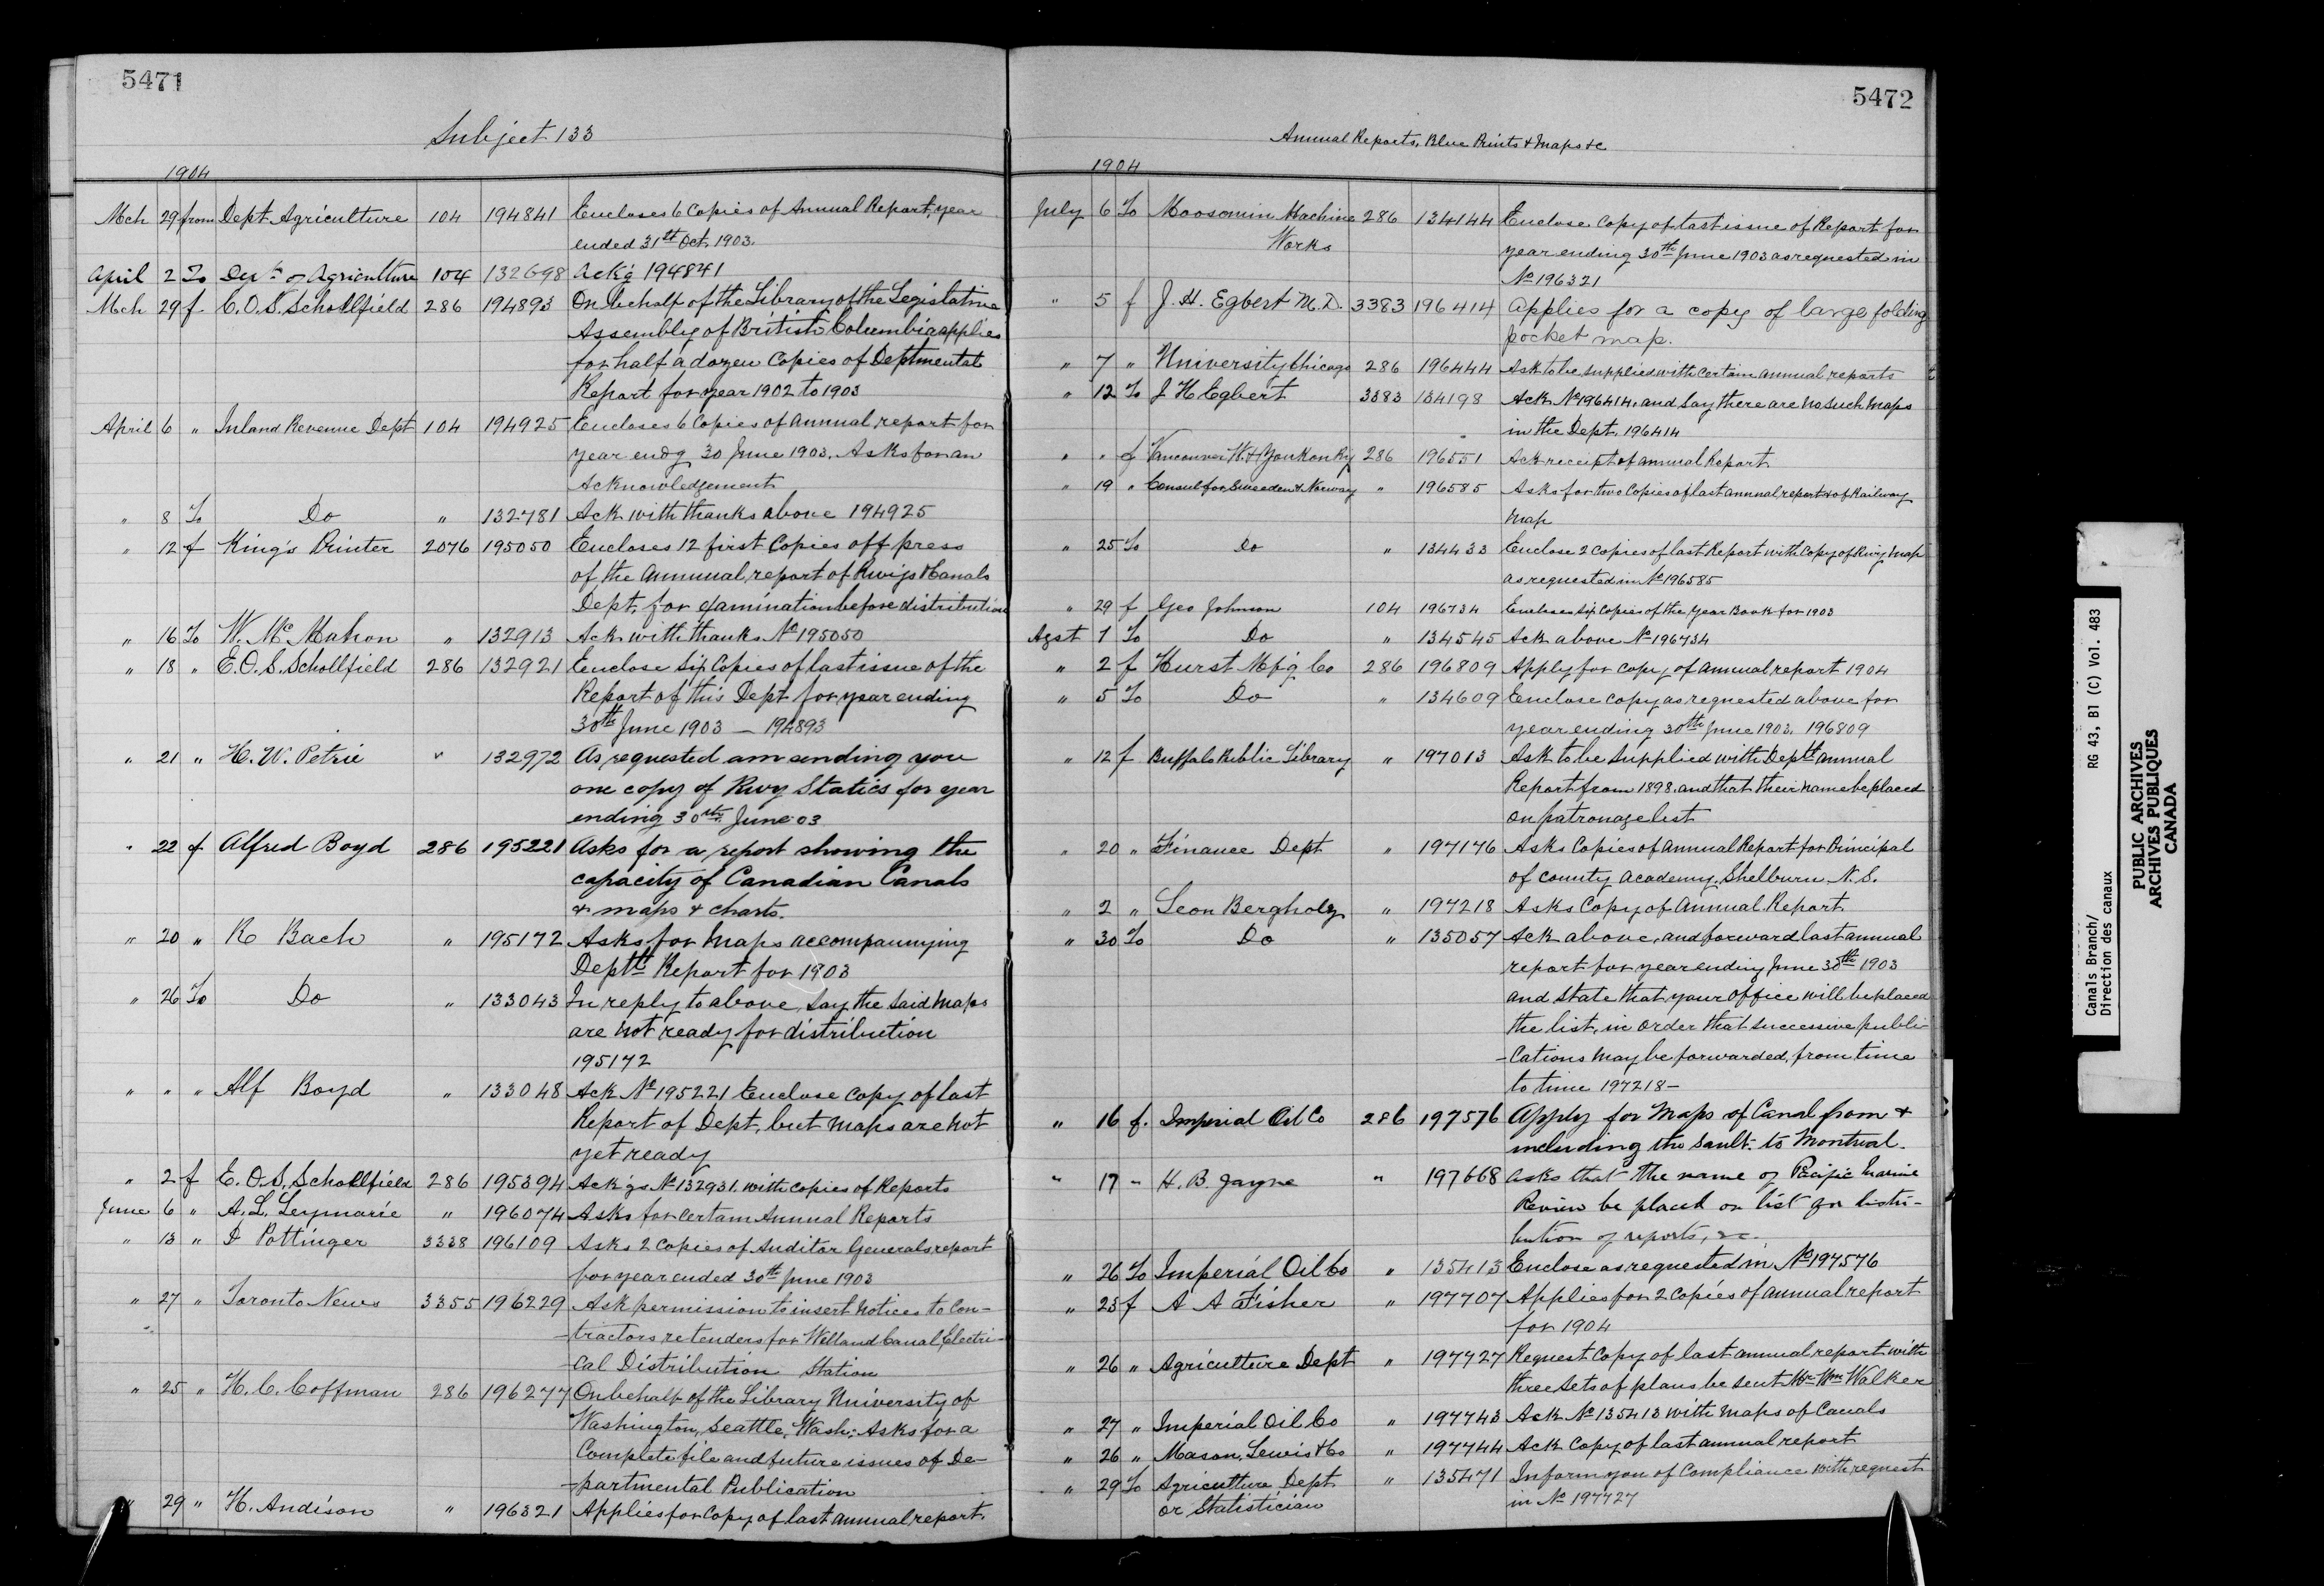 5471
Subject 133
1904
Mch 29 from Dept. Agriculture 104 194841 Encloses 6 Copies of Annual Report, year
ended 31st Oct. 1903.
April 2 To Dept. of Agriculture 104 132698 Ack'g 194841
Mch 29 f. C.O.S. Schollfield 286 194893 On behalf of the Library of the Legislative
Assembly of British Columbia applies
for half a dozen Copies of Deptmental
Report for year 1902 to 1903
April 6 " Inland Revenue Dept 104 194925 Encloses 6 Copies of annual report for
year endg 30 June 1903. Asks for an
Acknowledgement
" 8 To Do " 132781 Ack with thanks above 194925
" 12 f King's Printer 2076 195050 Encloses 12 first Copies off press
of the annual report of Rwys & Canals
Dept. for examination before distribution
" 16 To W. McMahon " 132913 Ack with thanks No 195050
" 18 " E.O.S. Schollfield 286 132921 Enclose Six Copies of last issue of the
Report of this Dept for year ending
30th June 1903 — 194893
" 21 " H. W. Petrie " 132972 As requested am sending you
one copy of Rwy Statics for year
ending 30th June 03
" 22 f Alfred Boyd 286 195221 Asks for a report showing the
capacity of Canadian Canals
& maps & charts.
" 20 " R Bach " 195172 Asks for Maps accompannying
Deptl Report for 1903
" 26 To Do " 133043 In reply to above, say the said maps
are not ready for distribution
195172
" " " Alf Boyd " 133048 Ack No 195221 Enclose copy of last
Report of Dept, but maps are not
yet ready
" 2 f E.O.S. Schollfield 286 195394 Ack'gs No 132931. with copies of Reports
June 6 " A.L. Leymarie " 196074 Asks for certain Annual Reports
" 13 " D Pottinger 3338 196109 Asks 2 Copies of Auditor Generals report
for year ended 30th June 1903
" 27 " Toronto News 3355 196229 Ask permission to insert notices to Con-
-tractors re tenders for Welland Canal, Electri-
-cal Distribution Station
" 25 " H.C. Coffman 286 196277 On behalf of the Library University of
Washington, Seattle, Wash: Asks for a
Complete file and future issues of De-
-partmental Publication
" 29 " H. Andison " 196321 Applies for copy of last annual report.
5472
Annual Reports, Blue Prints & Maps &c
1904
July 6 To Moosomin Machine 286 134144 Enclose copy of last issue of Report for
Works year ending 30th June 1903 as requested in
No 196321
" 5 f J. H. Egbert M.D. 3383 196414 Applies for a copy of large folding
pocket map.
" 7 " University Chicago 286 196444 Ask to be supplied with certain annual reports
" 12 To J H Egbert 3383 134198 Ack No 196414. and say there are no such maps
in the Dept. 196414
" " f Vancouver W. & Yonkon Ry 286 196551 Ack receipt of annual Report
" 19 " Consul for Sweeden & Norway " 196585 Asks for two Copies of last annual report & of Railway
map
" 25 To Do " 134433 Enclose 2 copies of last Report with Copy of Rwy Map
as requested in No 196585
" 29 f Geo Johnson 104 196734 Encloses Six Copies of the Year Book for 1903
Agst 1 To Do " 134545 Ack above No 196734
" 2 f Hurst Mf'g Co 286 196809 Apply for copy of annual report 1904
" 5 To Do " 134609 Enclose copy as requested above for
year ending 30th June 1903. 196809
" 12 f Buffalo Public Library " 197013 Ask to be supplied with Deptl annual
Report from 1898. and that their name be placed
on patronage list
" 20 " Finance Dept " 197176 Asks Copies of Annual Report for Principal
of County Academy, Shelburn N.S.
" 2 " Leon Bergholz " 197218 Asks Copy of Annual Report
" 30 To Do " 135057 Ack above, and forward last annual
report for year ending June 30th 1903
and state that your office will be placed
the list, in order that successive publi-
-cations may be forwarded, from time
to time 197218 —
" 16 f. Imperial Oil Co 286 197576 Apply for Maps of Canal from &
including the Sault. to Montreal.
" 17 " H. B. Jayne " 197668 asks that the name of Pacific Marine
Review be placed on list for distri-
bution of reports, &c.
" 26 To Imperial Oil Co " 135413 Enclose as requested in No 197576
" 23 f A A Fisher " 197707 Applies for 2 copies of annual report
for 1904
" 26 " Agriculture Dept " 197727 Request copy of last annual report with
three sets of plans be sent Mr Wm Walker
" 27 " Imperial Oil Co " 197743 Ack No 135413 with maps of Canals
" 26 " Mason, Lewis & Co " 197744 Ack Copy of last annual report
" 29 To Agriculture Dept " 135471 Inform you of Compliance with request
or Statistician in No 197727
Canals Branch/ RG 43, B1 (C) Vol. 483
Direction des canaux
PUBLIC ARCHIVES
ARCHIVES PUBLIQUES
CANADA